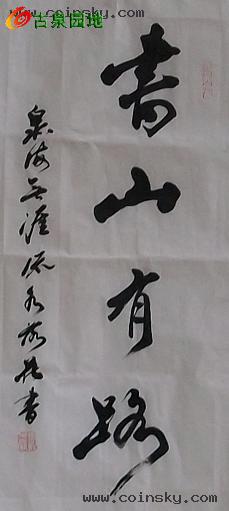 古泉园地
www.coinsky.com
書山有路
泉海無涯流水落花書
www.coinsky.com